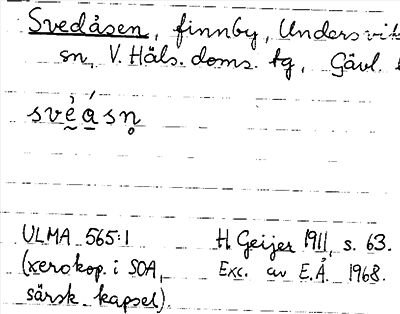 Svedåsen, finnby, Undersvik
sn, V. Häls. doms. tg, Gävl.
svḛ̀á̱sn̥
ULMA 565:1 H. Geijer 1911, s. 63.
(xerokop. i SOA, Exc. av E.Å. 1968.
särsk. kapsel).